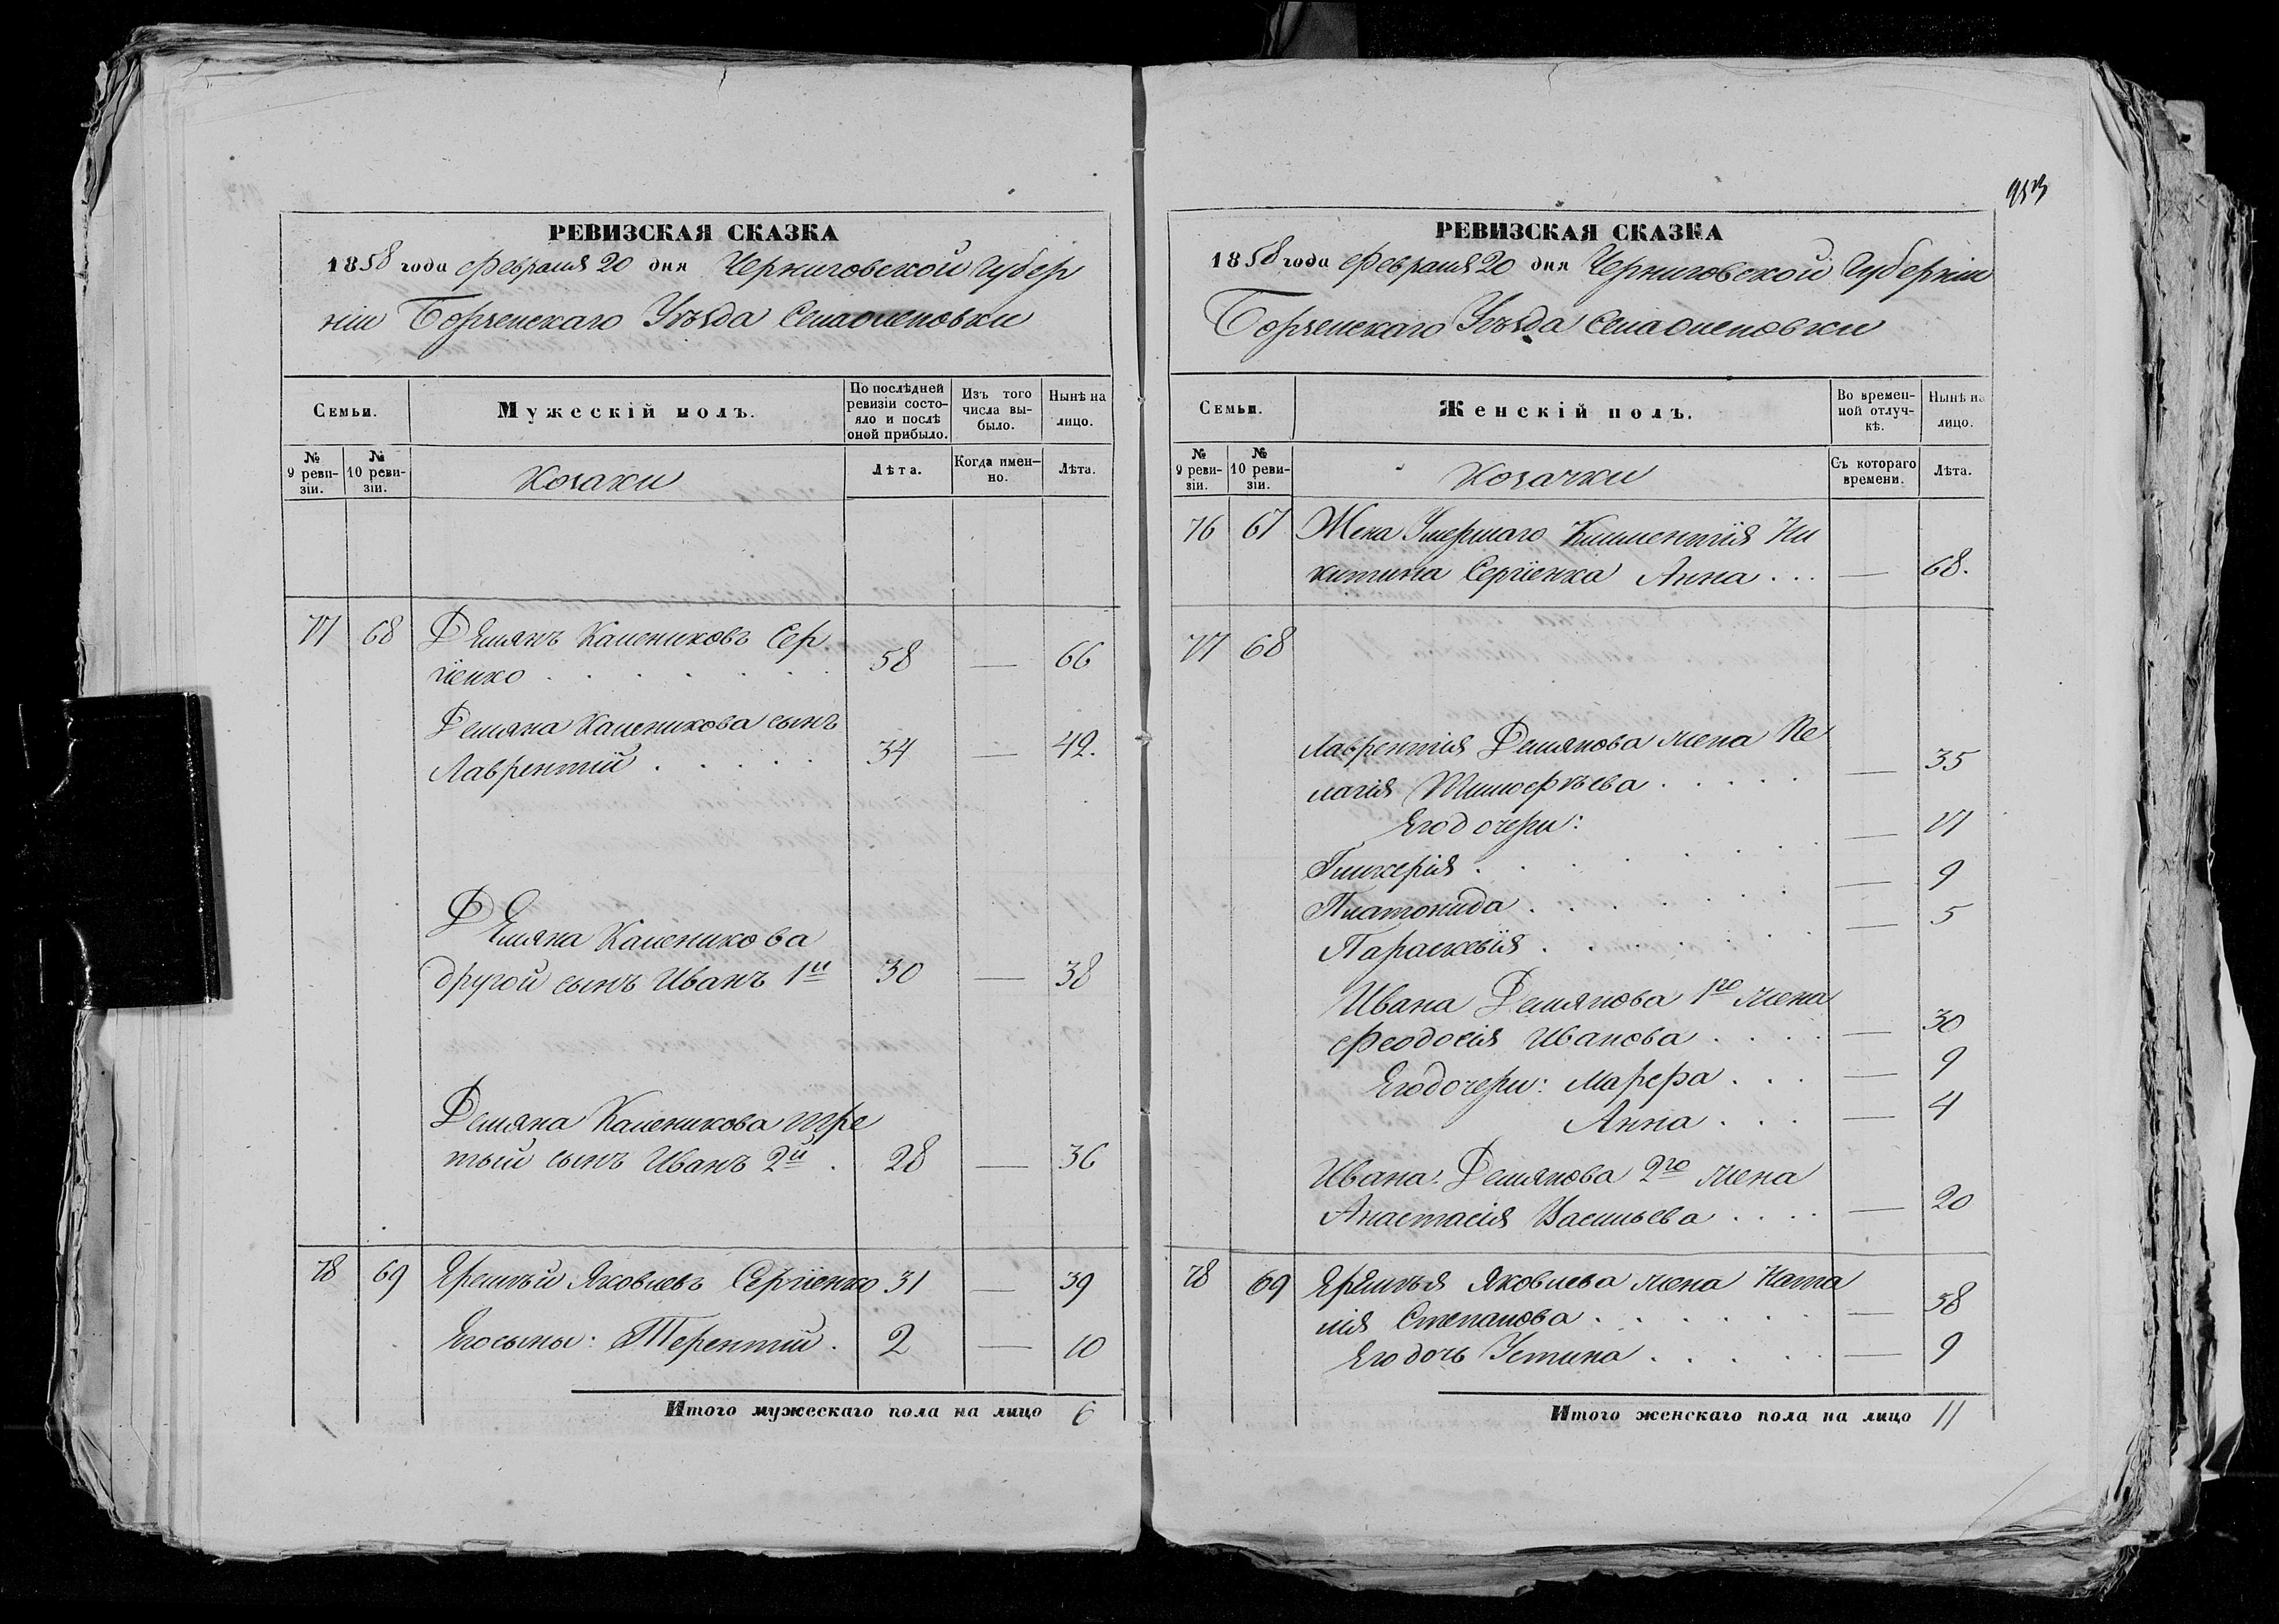 РЕВИЗСКАЯ СКАЗКА
1858 года Февраля 20 дня Черниговской Губер
ніи Борзенскаго Уѣзда Села Оленовки
Семьи.
Мужескій полъ.
По послѣдней ревизіи состояло и послѣ оной прибыло.
Изъ того числа выбыло.
Нынѣ на лицо.
№ 9 ревизіи.
№ 10 ревизіи.
Козаки
Лѣта.
Когда именно.
Лѣта.
77 68 Демянъ Калениковъ Сер
гіенко . . . . . . . 58 — 66
Демяна Каленикова сынъ
Лаврентій . . . . . 34 — 42.
Демяна Каленикова
другой сынъ Иванъ 1й 30 — 38
Демяна Каленикова тре
тый сынъ Иванъ 2й . 28 — 36
78 69 Яремѣй Яковлевъ Сергіенко 31 — 39
Его сыны: Терентій . 2 — 10
Итого мужескаго пола на лицо 6
953
РЕВИЗСКАЯ СКАЗКА
1858 года Февраля 20 дня Черниговской Губерніи
Борзенскаго Уѣзда Села Оленовки
Семьи.
Женскій полъ.
Во временной отлучкѣ.
Нынѣ на лицо.
№ 9 ревизіи.
№ 10 ревизіи.
Козачки
Съ котораго времени.
Лѣта.
76 67 Жена Умершаго Климентія Ни
китина Сергіенка Анна . . . — 68.
77 68
Лаврентія Демянова жена Пе
лагія Тимофѣева . . . . . — 35
Его дочери: — 17
Гликерія . . . . . . . — 9
Платонида . . . . . . — 5
Параскевія . . . . . . —
Ивана Демянова 1го жена
Феодосія Иванова . . . . — 30
Его дочери: Марфа . . . — 9
Анна . . . — 4
Ивана Демянова 2го жена
Анастасія Васильева . . . . — 20
78 69 Яремѣя Яковлева жена Ната
лія Степанова . . . . . . — 38
Его дочь Устина . . . . . — 9
Итого женскаго пола на лицо 11